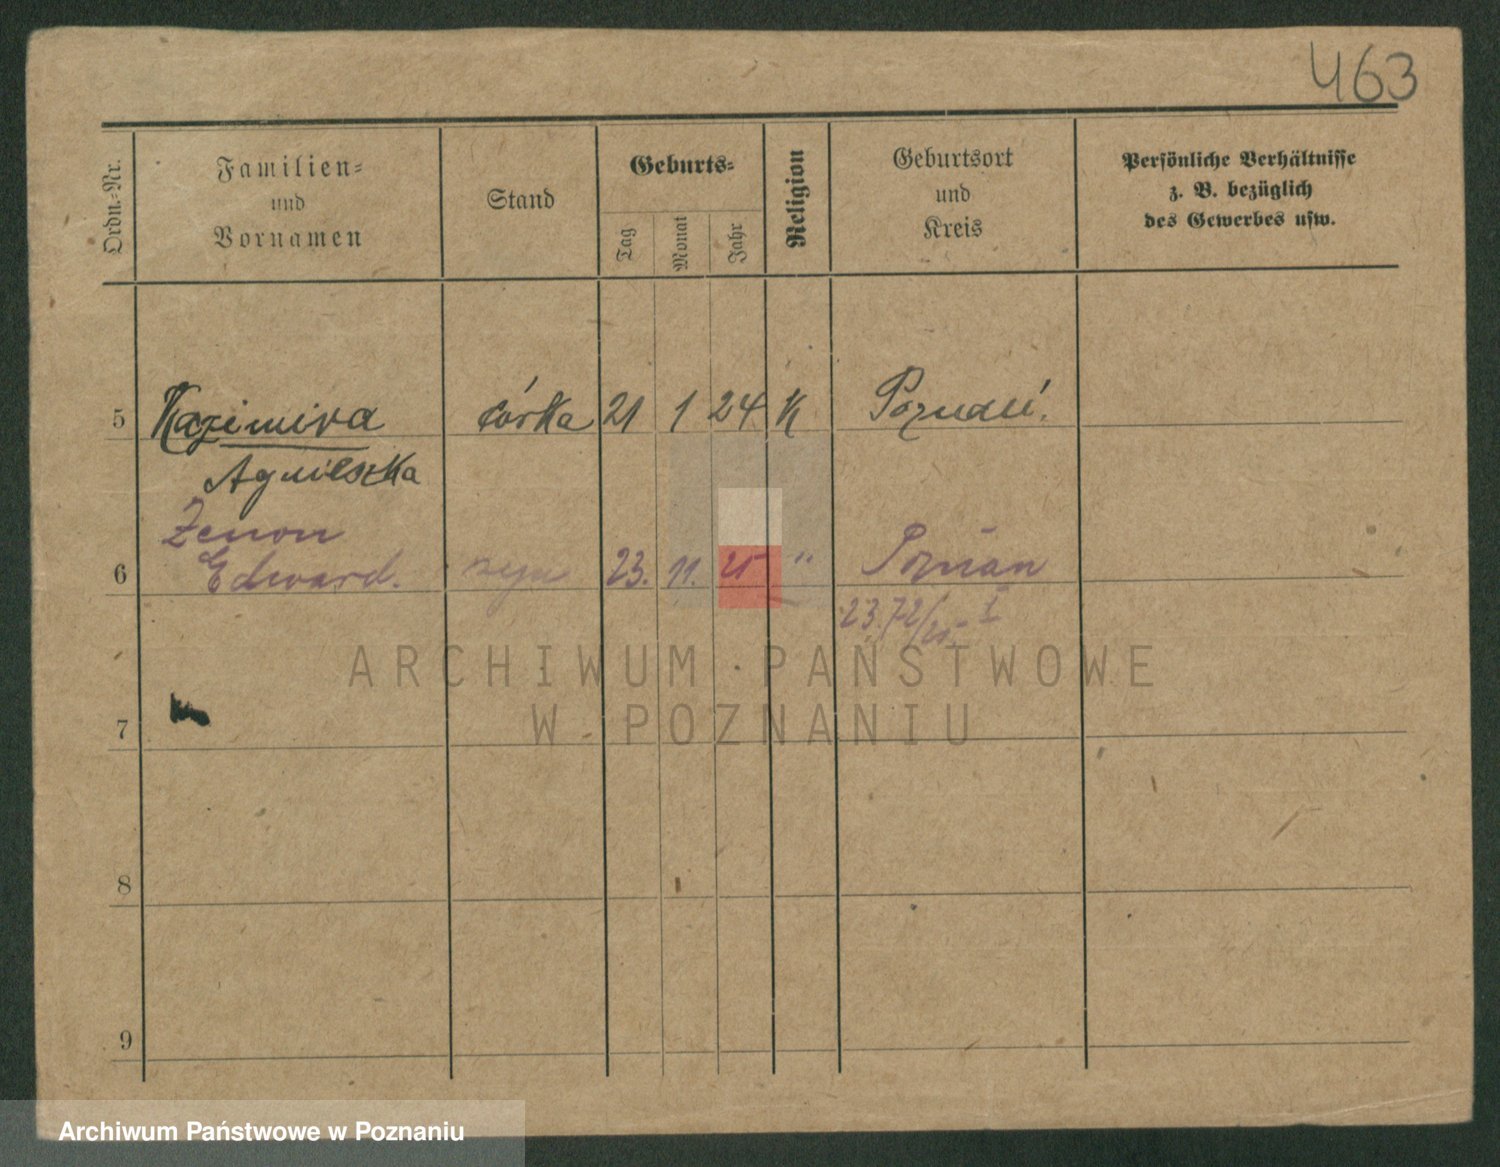 463
Ordn.-Nr.
Familien-
und
Vornamen
Stand
Geburts-
Tag
Monat
Jahr
Religion
Geburtsort
und
Kreis
Persönliche Verhältnisse
z. B. bezüglich
des Gewerbes usw.
5 Kazimira córka 21 1 24 K Poznań.
Agnieszka
Zenon
6 Edward. syn 23. 11. 25 " Poznań
23.72/25 I
ARCHIWUM PAŃSTWOWE
W POZNANIU
7
8
9
Archiwum Państwowe w Poznaniu